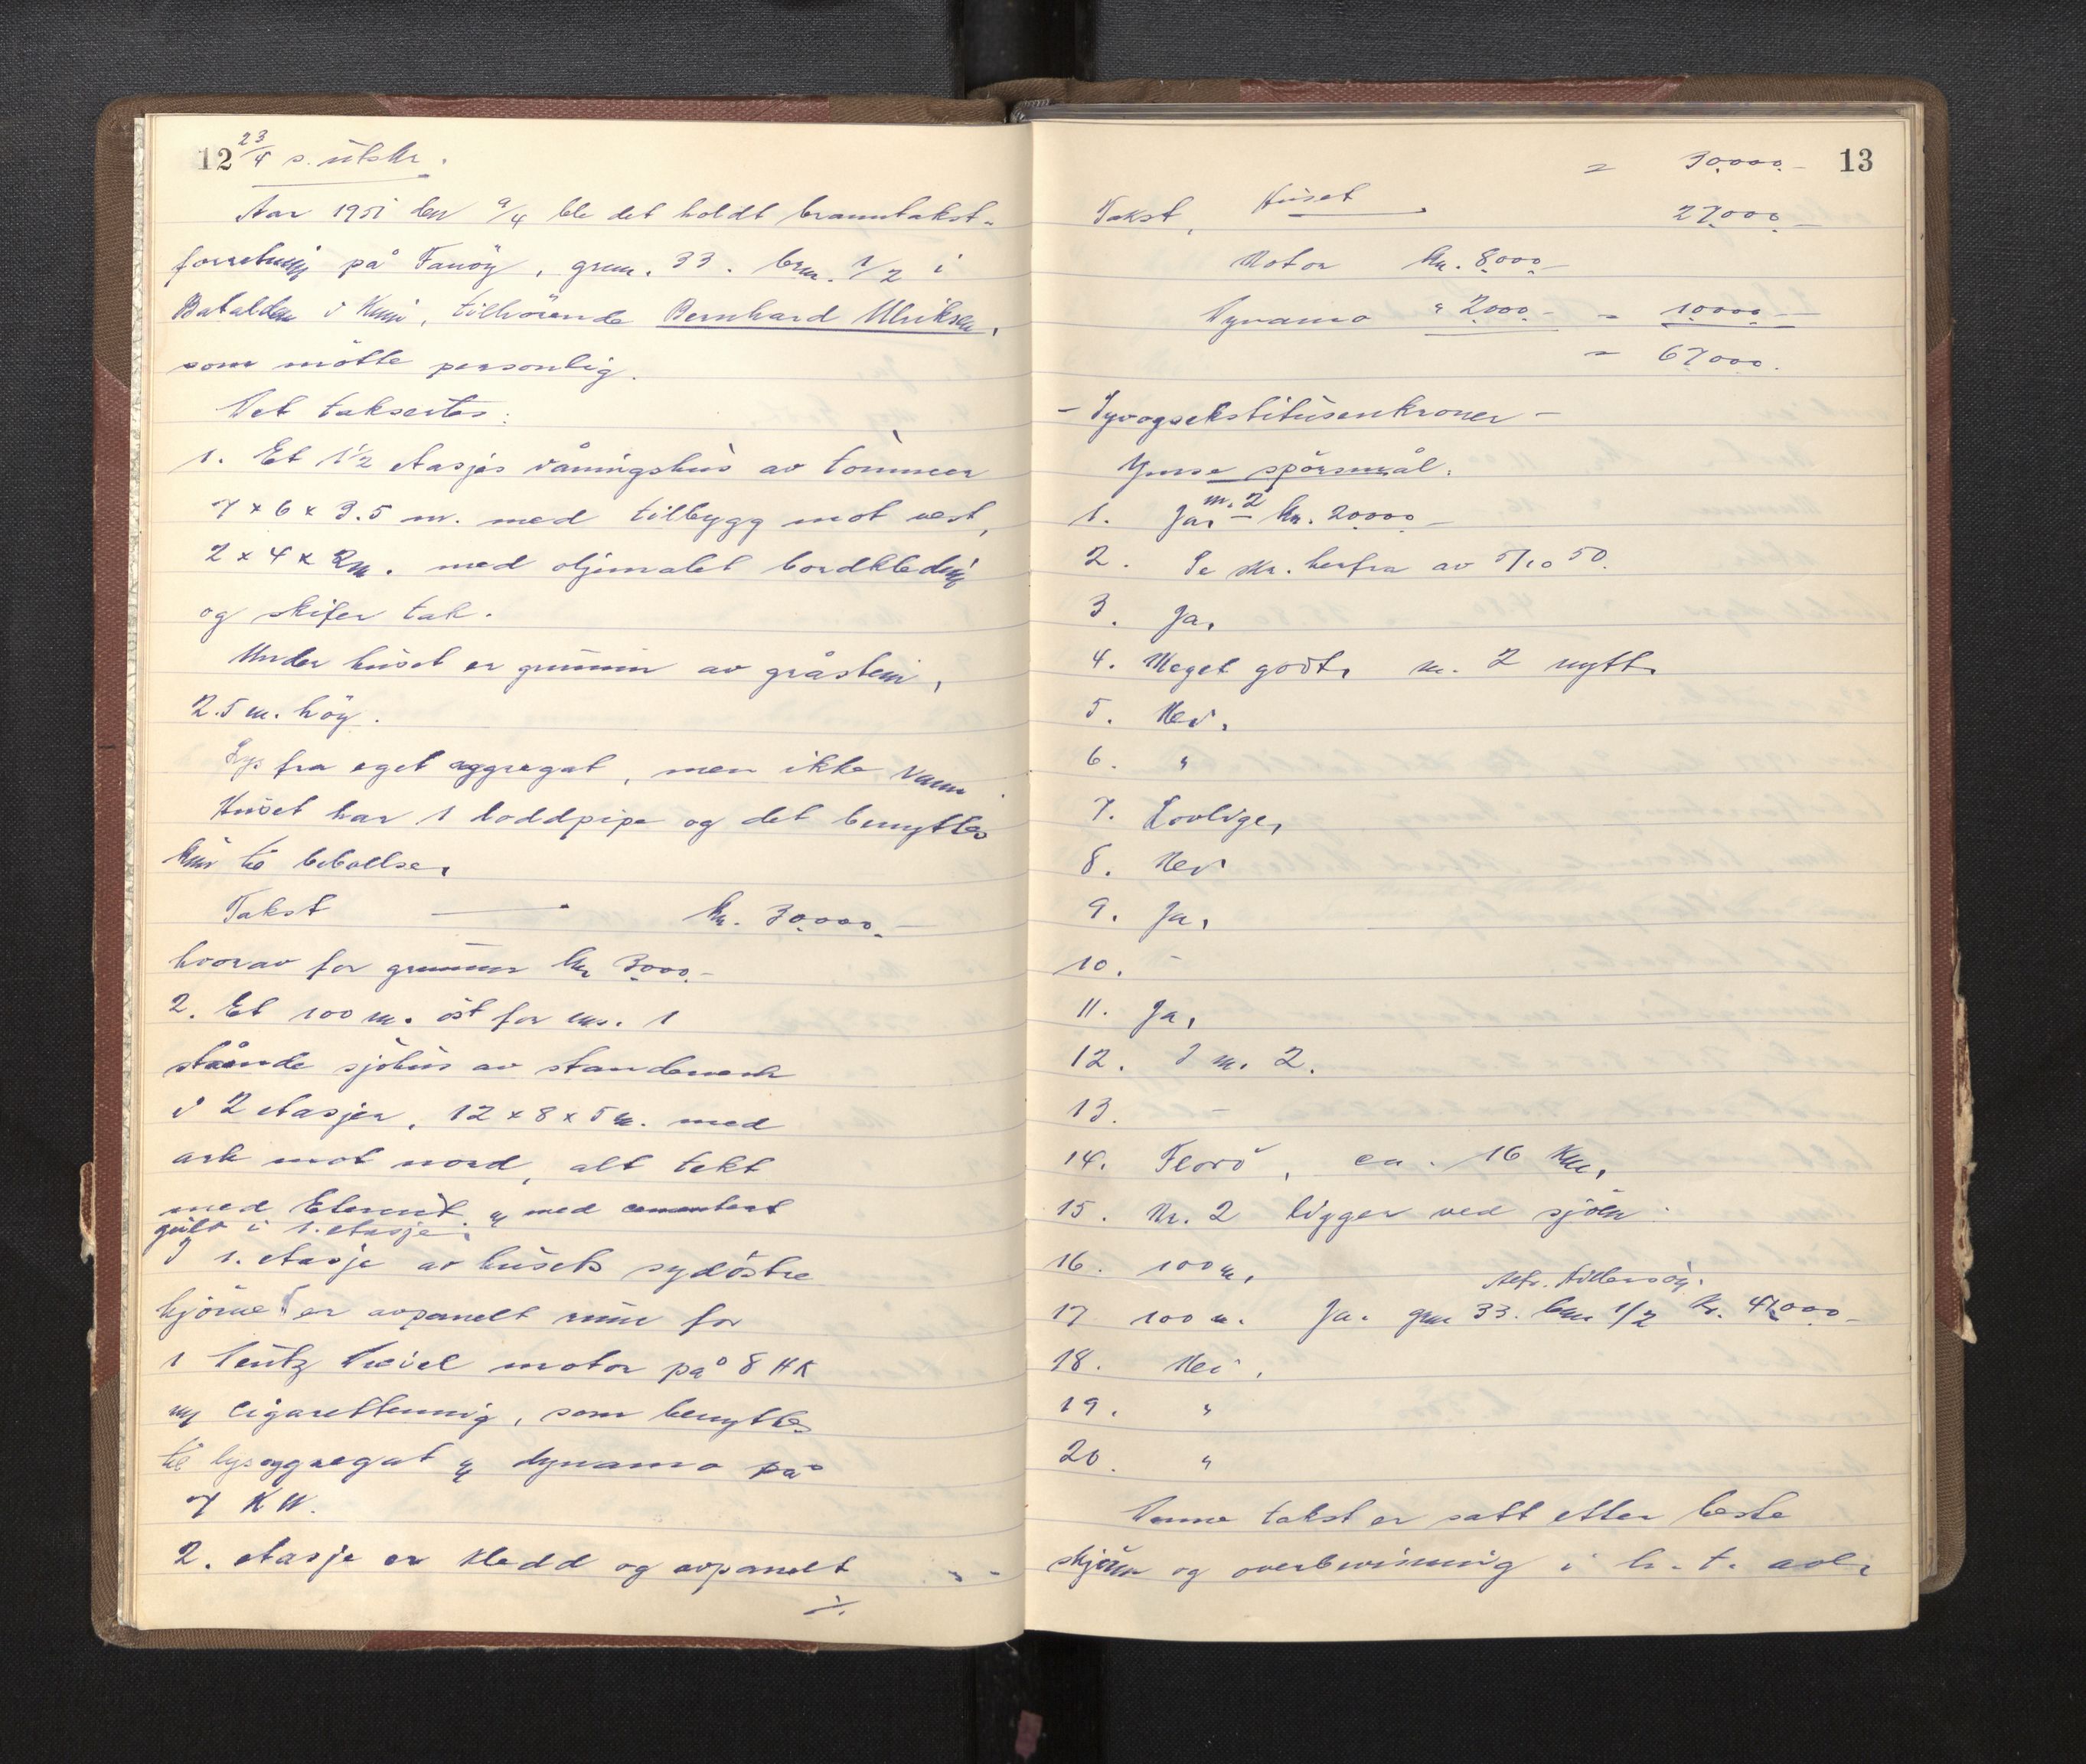 12 23/4 s. utskr.
Aar 1951 den 9/4 ble det holdt branntakst-
forretning på Fanöy, grnr. 33. brnr. 1/2 i
Batalden i Kinn, tilhörende Bernhard Ulriksen,
som mötte personlig.
Det takseres:
1. Et 1 1/2 etasjes våningshus av tömmer
7 x 6 x 3.5 m. med tilbygg mot vest,
2 x 4 x 2 m. med oljemalet bordkledning
og skifer tak.
Under huset er grunnmur av gråstein,
2.5 m. höy.
Lys fra eget aggregat, men ikke vann.
Huset har 1 loddpipe og det benyttes
kun til beboelse.
Takst — kr. 30.000.-
hvorav for grunnmur kr 3.000.-
2. Et 100 m. öst for nr. 1
stående sjöhus av standerverk
i 2 etasjer, 12 x 8 x 5 m. med
ark mot nord, alt tekt
med Eternit og med cementert
gulv i 1. etasje.
I 1. etasje av husets sydöstre
hjörne er avpanelt rum for
1 Deutz Diesel motor på 8 HK
m/ cigarettenning, som benyttes
til lysaggregat og dynamo på
7 KW.
2. etasje er kledd og avpanelt
./.
= 30.000.- 13
Takst, Huset 27.000.-
Motor kr. 8.000.-
Dynamo " 2.000.- = 10.000.-
= 67.000.
- Syvogsekstitusenkroner -
Ymse spörsmål:
1. Ja, nr. 2 - kr. 20.000.-
2. Se skr. herfra av 5/10 50.
3. Ja,
4. Meget godt, nr. 2 nytt.
5. Nei,
6. "
7. Lovlige,
8. Nei
9. Ja,
10. -
11. Ja,
12. I nr. 2.
13. -
14. Florö, ca. 16 km,
15. Nr. 2 ligger ved sjöen.
16. 100 m,
17 100 m. Ja. gnr 33. bnr 1/2 kr. 47.000.-
18. Nei,
19. "
20. "
Denne takst er satt etter beste
skjönn og overbevisning i h. t. avl.